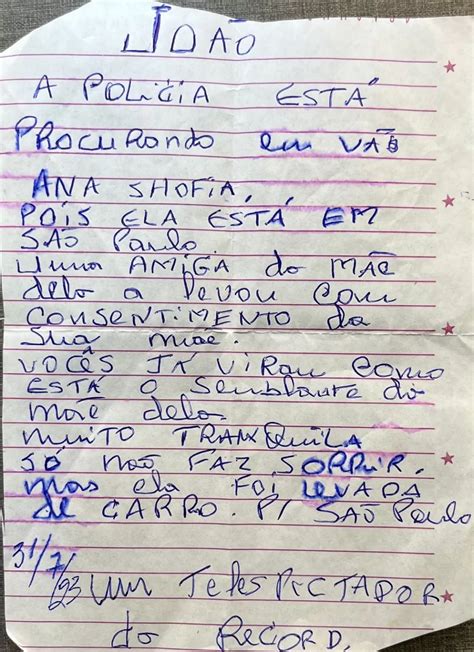 JOÃO
A POLiCiA ESTÁ
PROCURANDO em VÃO
ANA SHOFIA,
POIS ELA ESTÁ EM
SÃO Paulo.
Uma AMIGA da MÃE
dela a levou com
CONSENTIMENTO da
Sua mãe.
VOCÊS JÁ VIRAM COMO
ESTÁ O Semblante da
mãe dela
muito TRANXQUILA
SÓ não FAZ SORRIR.
mas ela FOI LEVADA
de CARRO. P/ SÃO Paulo
31/7/23 Um TelesPICTADOR
da RECORD.